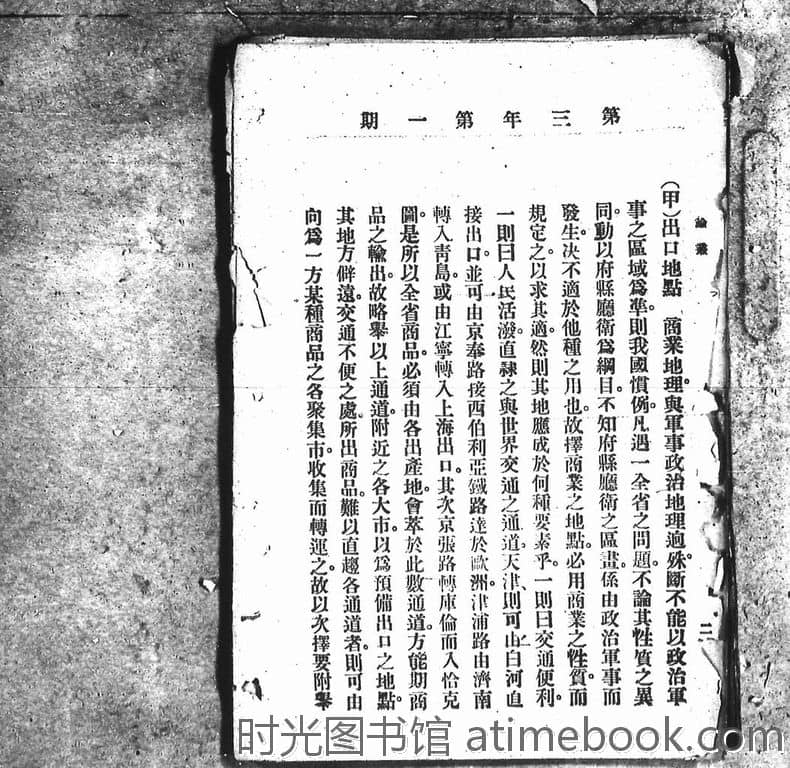 第三年第一期
論叢
二
(甲)出口地點　商業地理。與軍事政治地理逈殊。斷不能以政治軍
事之區域爲準。則我國慣例。凡遇一全省之問題。不論其性質之異
同。動以府縣廳衛爲綱目。不知府縣廳衛之區畫。係由政治軍事而
發生。决不適於他種之用也。故擇商業之地點。必用商業之性質。而
規定之以求其適。然則其地應成於何種要素乎。一則曰交通便利。
一則曰人民活潑。直隸之與世界交通之通道。天津則可由白河直
接出口。並可由京奉路接西伯利亞鐵路達於歐洲。津浦路由濟南
轉入靑島。或由江寧轉入上海出口。其次京張路轉庫倫而入恰克
圖。是所以全省商品。必須由各出產地會萃於此數通道。方能期商
品之輸出。故略舉以上通道附近之各大市以爲預備出口之地點。
其地方僻遠。交通不便之處所出商品。難以直趨各通道者。則可由
向爲一方某種商品之各聚集市。收集而轉運之。故以次擇要附舉
时光图书馆 atimebook.com